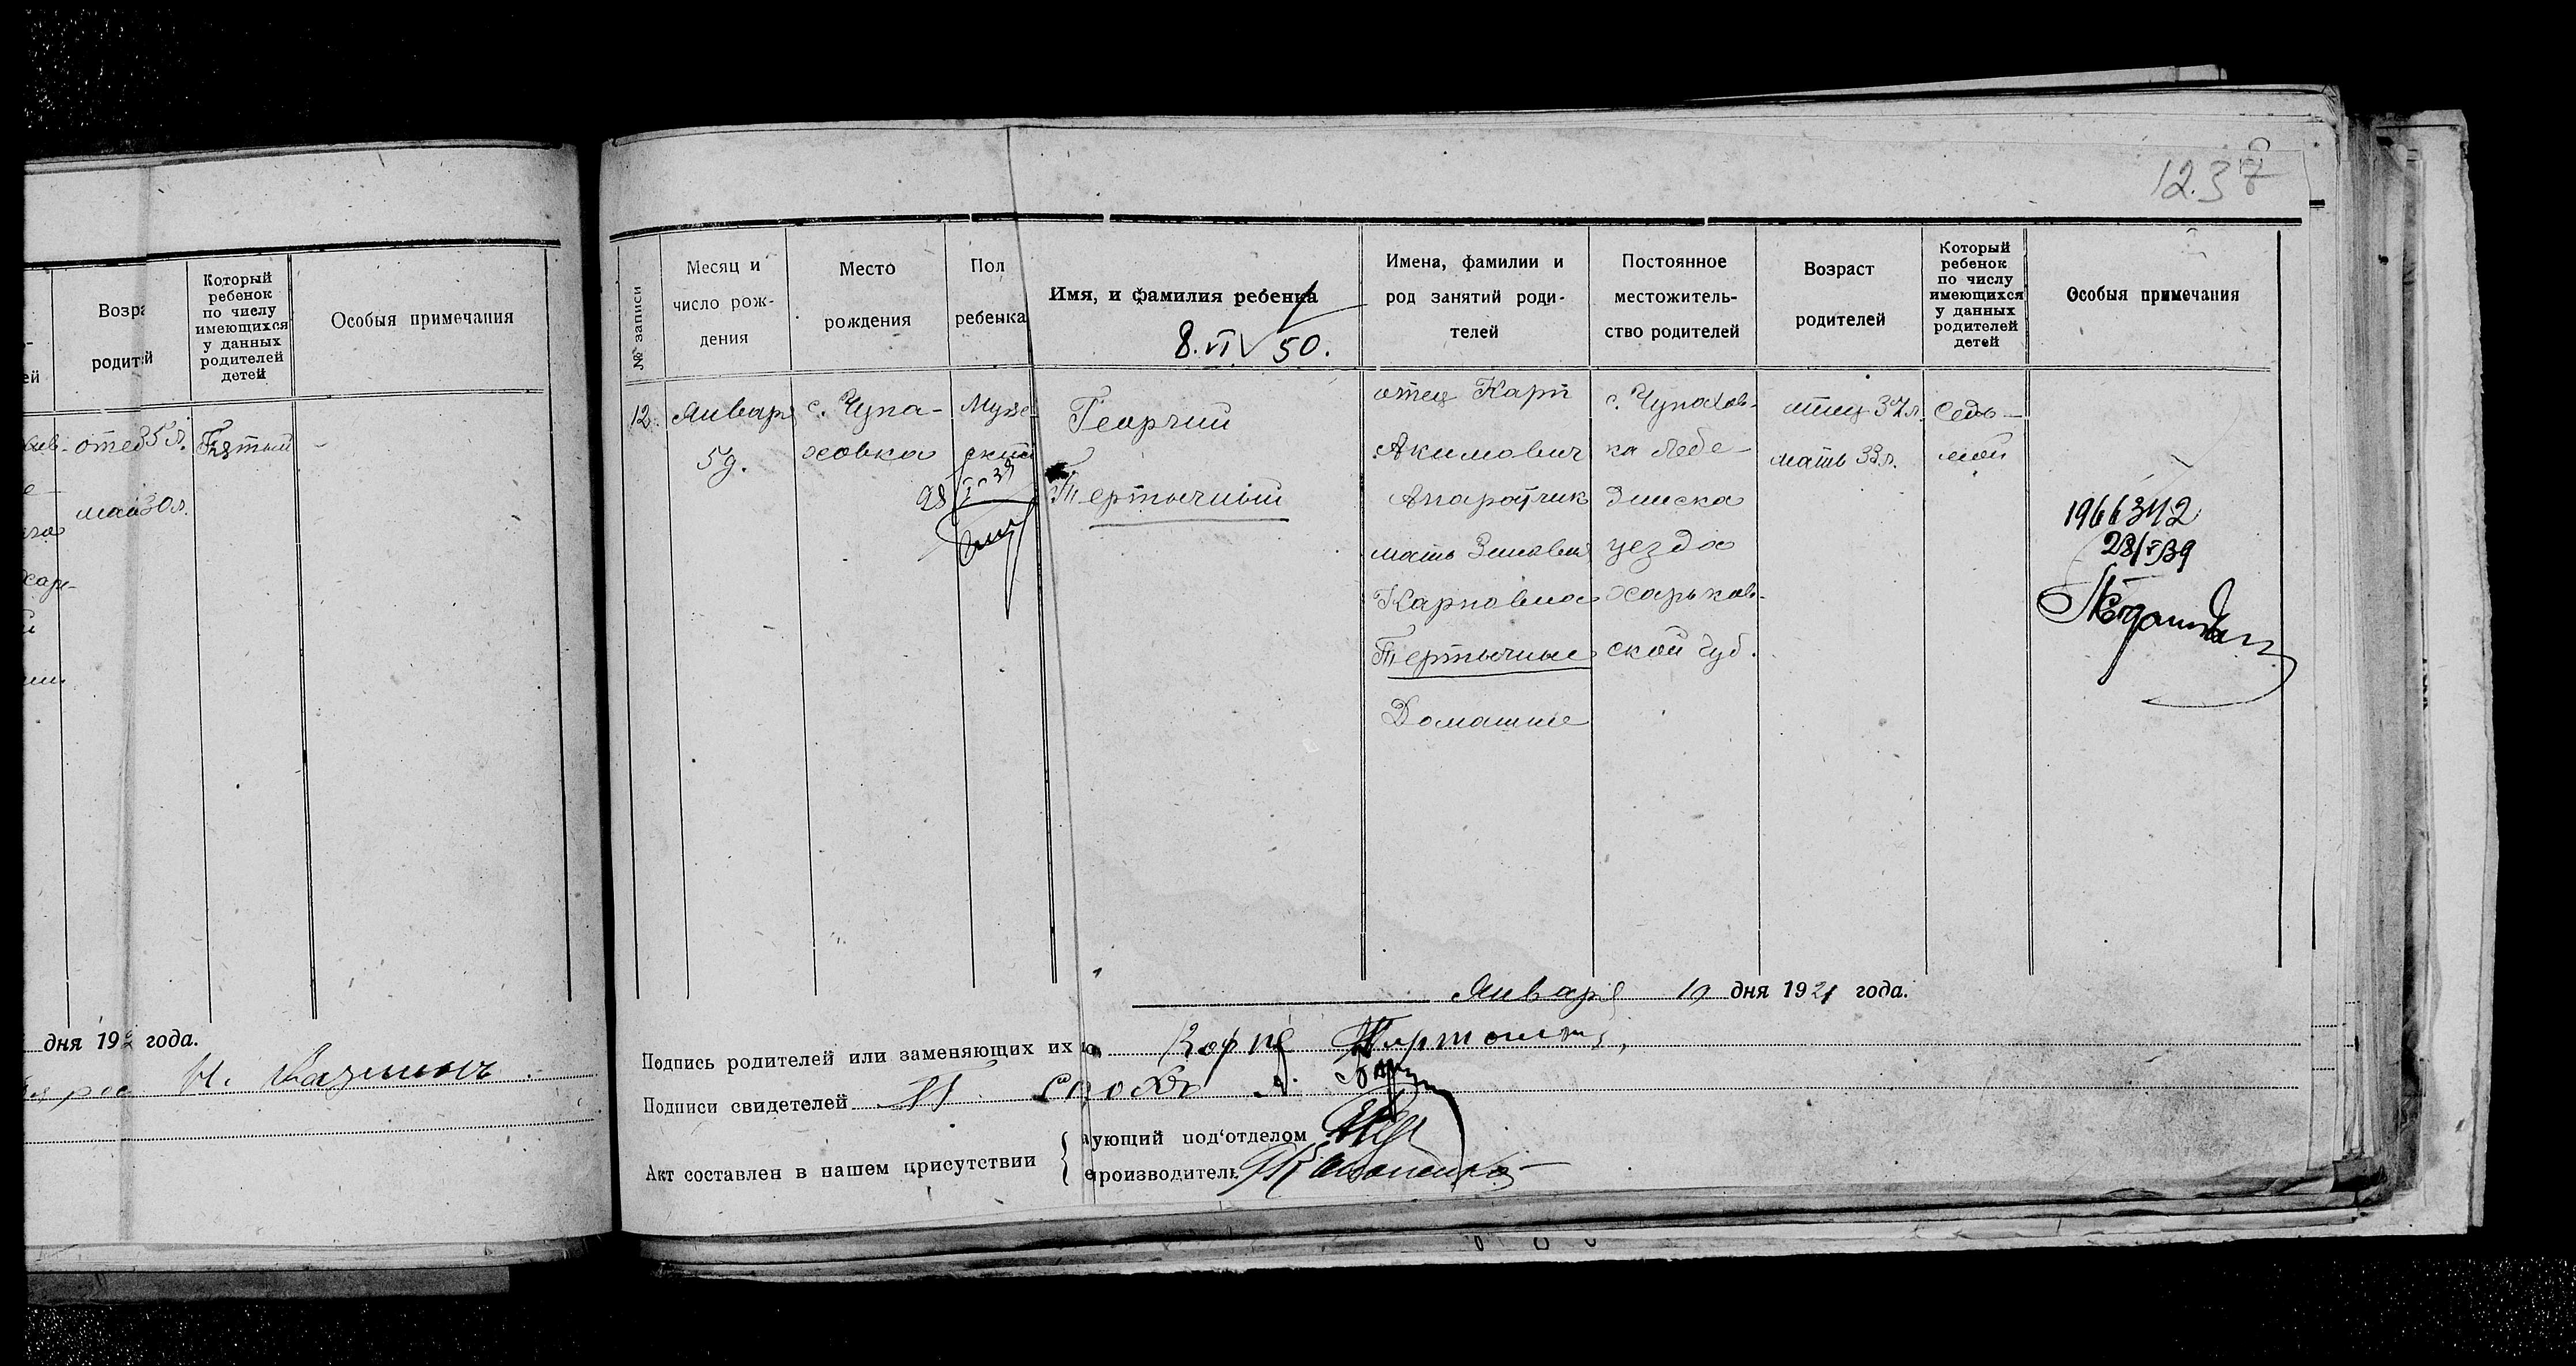 12.3
Возра
родит й
Который
ребенок
по числу
имеющихся
у данных
родителей
детей
Особыя примечания
ей
отец 35 л.
Пятый
30 л.
дня 192 года.
Н.
№ записи
Месяц и
число рож-
дения
Место
рождения
Пол
ребенка
Имя, и фамилия ребенка
8.VI 50.
Имена, фамилии и
род занятий роди-
телей
Постоянное
местожитель-
ство родителей
Возраст
родителей
Который
ребенок
по числу
имеющихся
у данных
родителей
детей
Особыя примечания
12.
Январь
5 д.
с. Чупа-
ховка
Муже
ский
28
Георгий
Тертычный
отец Карп
Акимович
Апаратчик
мать Зиновия
Карповна
Тертычные
Домашние
с. Чупахов-
ка Лебе-
динска
уезда
Харьков-
ской губ.
отец 37 л.
мать 33 л.
Седь-
мой
1966342
28/V 39
Января 19 дня 1921 года.
Подпись родителей или заменяющих их
Подписи свидетелей
Акт составлен в нашем присутствии
ующий под'отделом
производитель